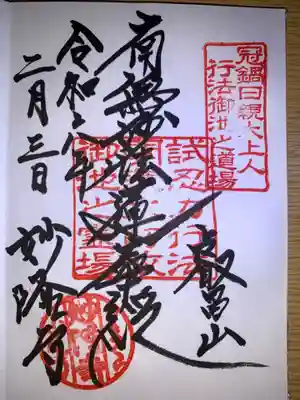 冠鍋日親大上人
行法御池之道場
南無妙法蓮華経
試忍力行法
御池之霊場
叡昌山
令和八年
二月三日
妙隆寺